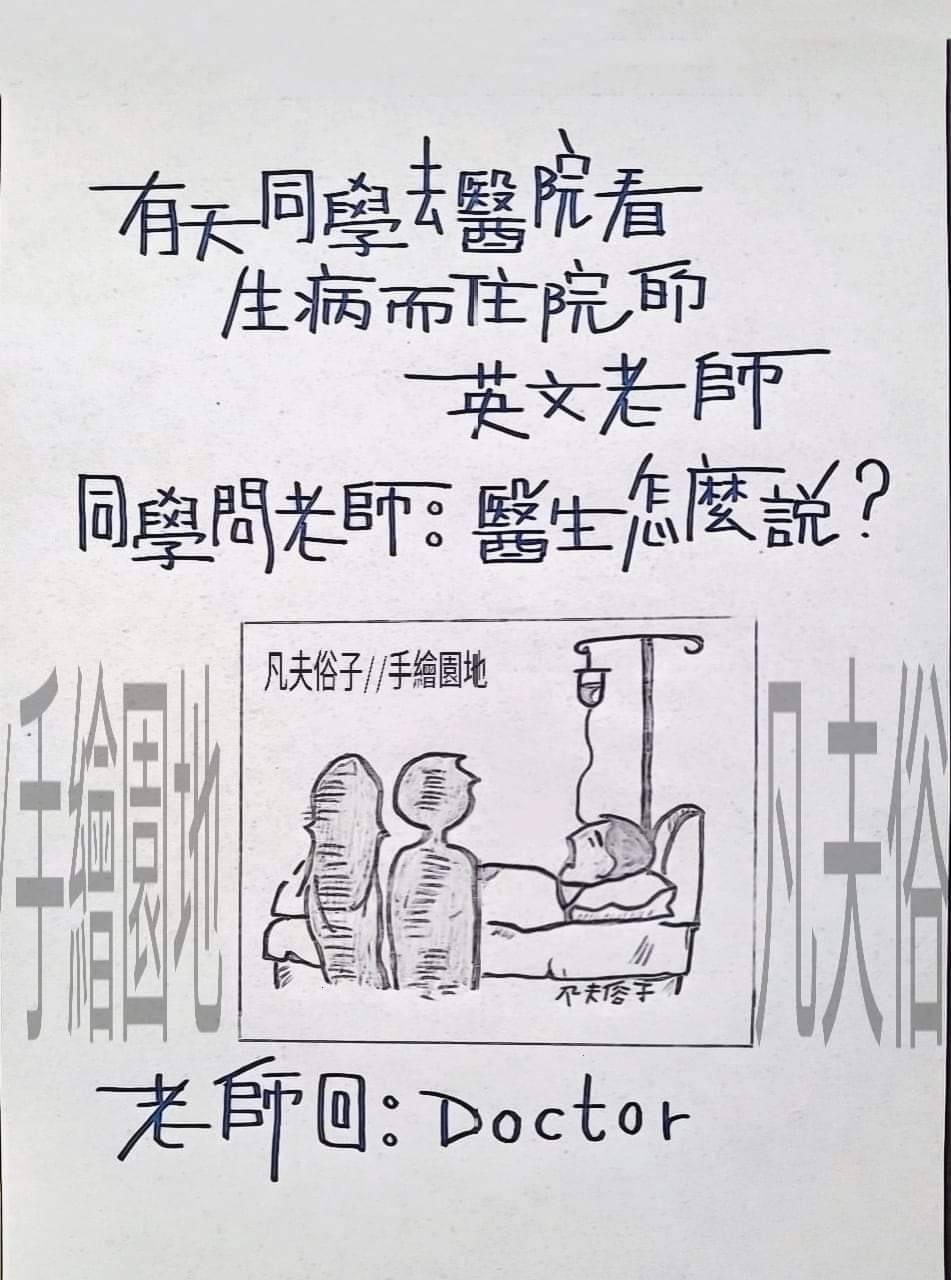 有天同學去醫院看
生病而住院的
英文老師
同學問老師：醫生怎麼說？
凡夫俗子//手繪園地
/手繪園地
凡夫俗
凡夫俗子
老師回：Doctor